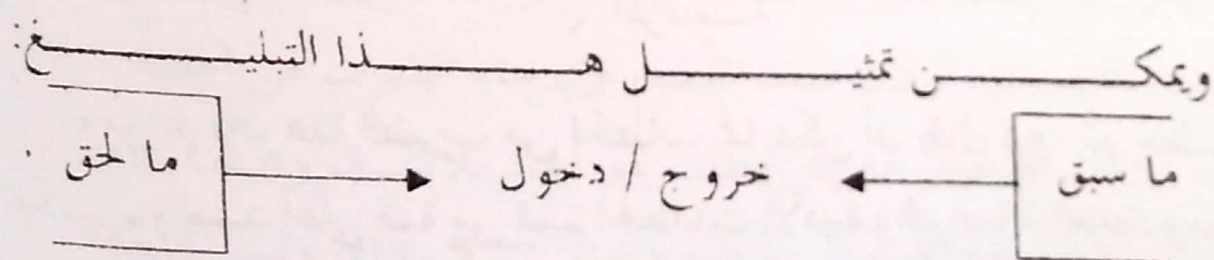 ويمكن تمثيل هذا التبليغ:
ما سبق خروج / دخول ما لحق .